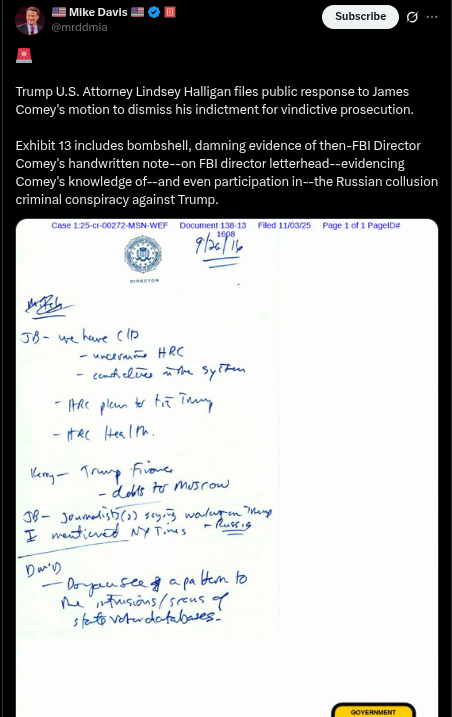 Mike Davis
@mrddmia
Subscribe
Trump U.S. Attorney Lindsey Halligan files public response to James
Comey's motion to dismiss his indictment for vindictive prosecution.
Exhibit 13 includes bombshell, damning evidence of then-FBI Director
Comey's handwritten note--on FBI director letterhead--evidencing
Comey's knowledge of--and even participation in--the Russian collusion
criminal conspiracy against Trump.
Case 1:25-cr-00272-MSN-WEF Document 138-13 Filed 11/03/25 Page 1 of 1 PageID#
1608
9/26/16
DIRECTOR
JB - we have
- HRC
- candidates in the system
- HRC plan to Trump
- HRC Health.
Kerry - Trump
- debts to Moscow
JB - Journalist(s) saying working on Trump
- Russia
I mentioned NY Times
- Do you see a pattern to
the intrusions/scans of
state voter databases.
GOVERNMENT